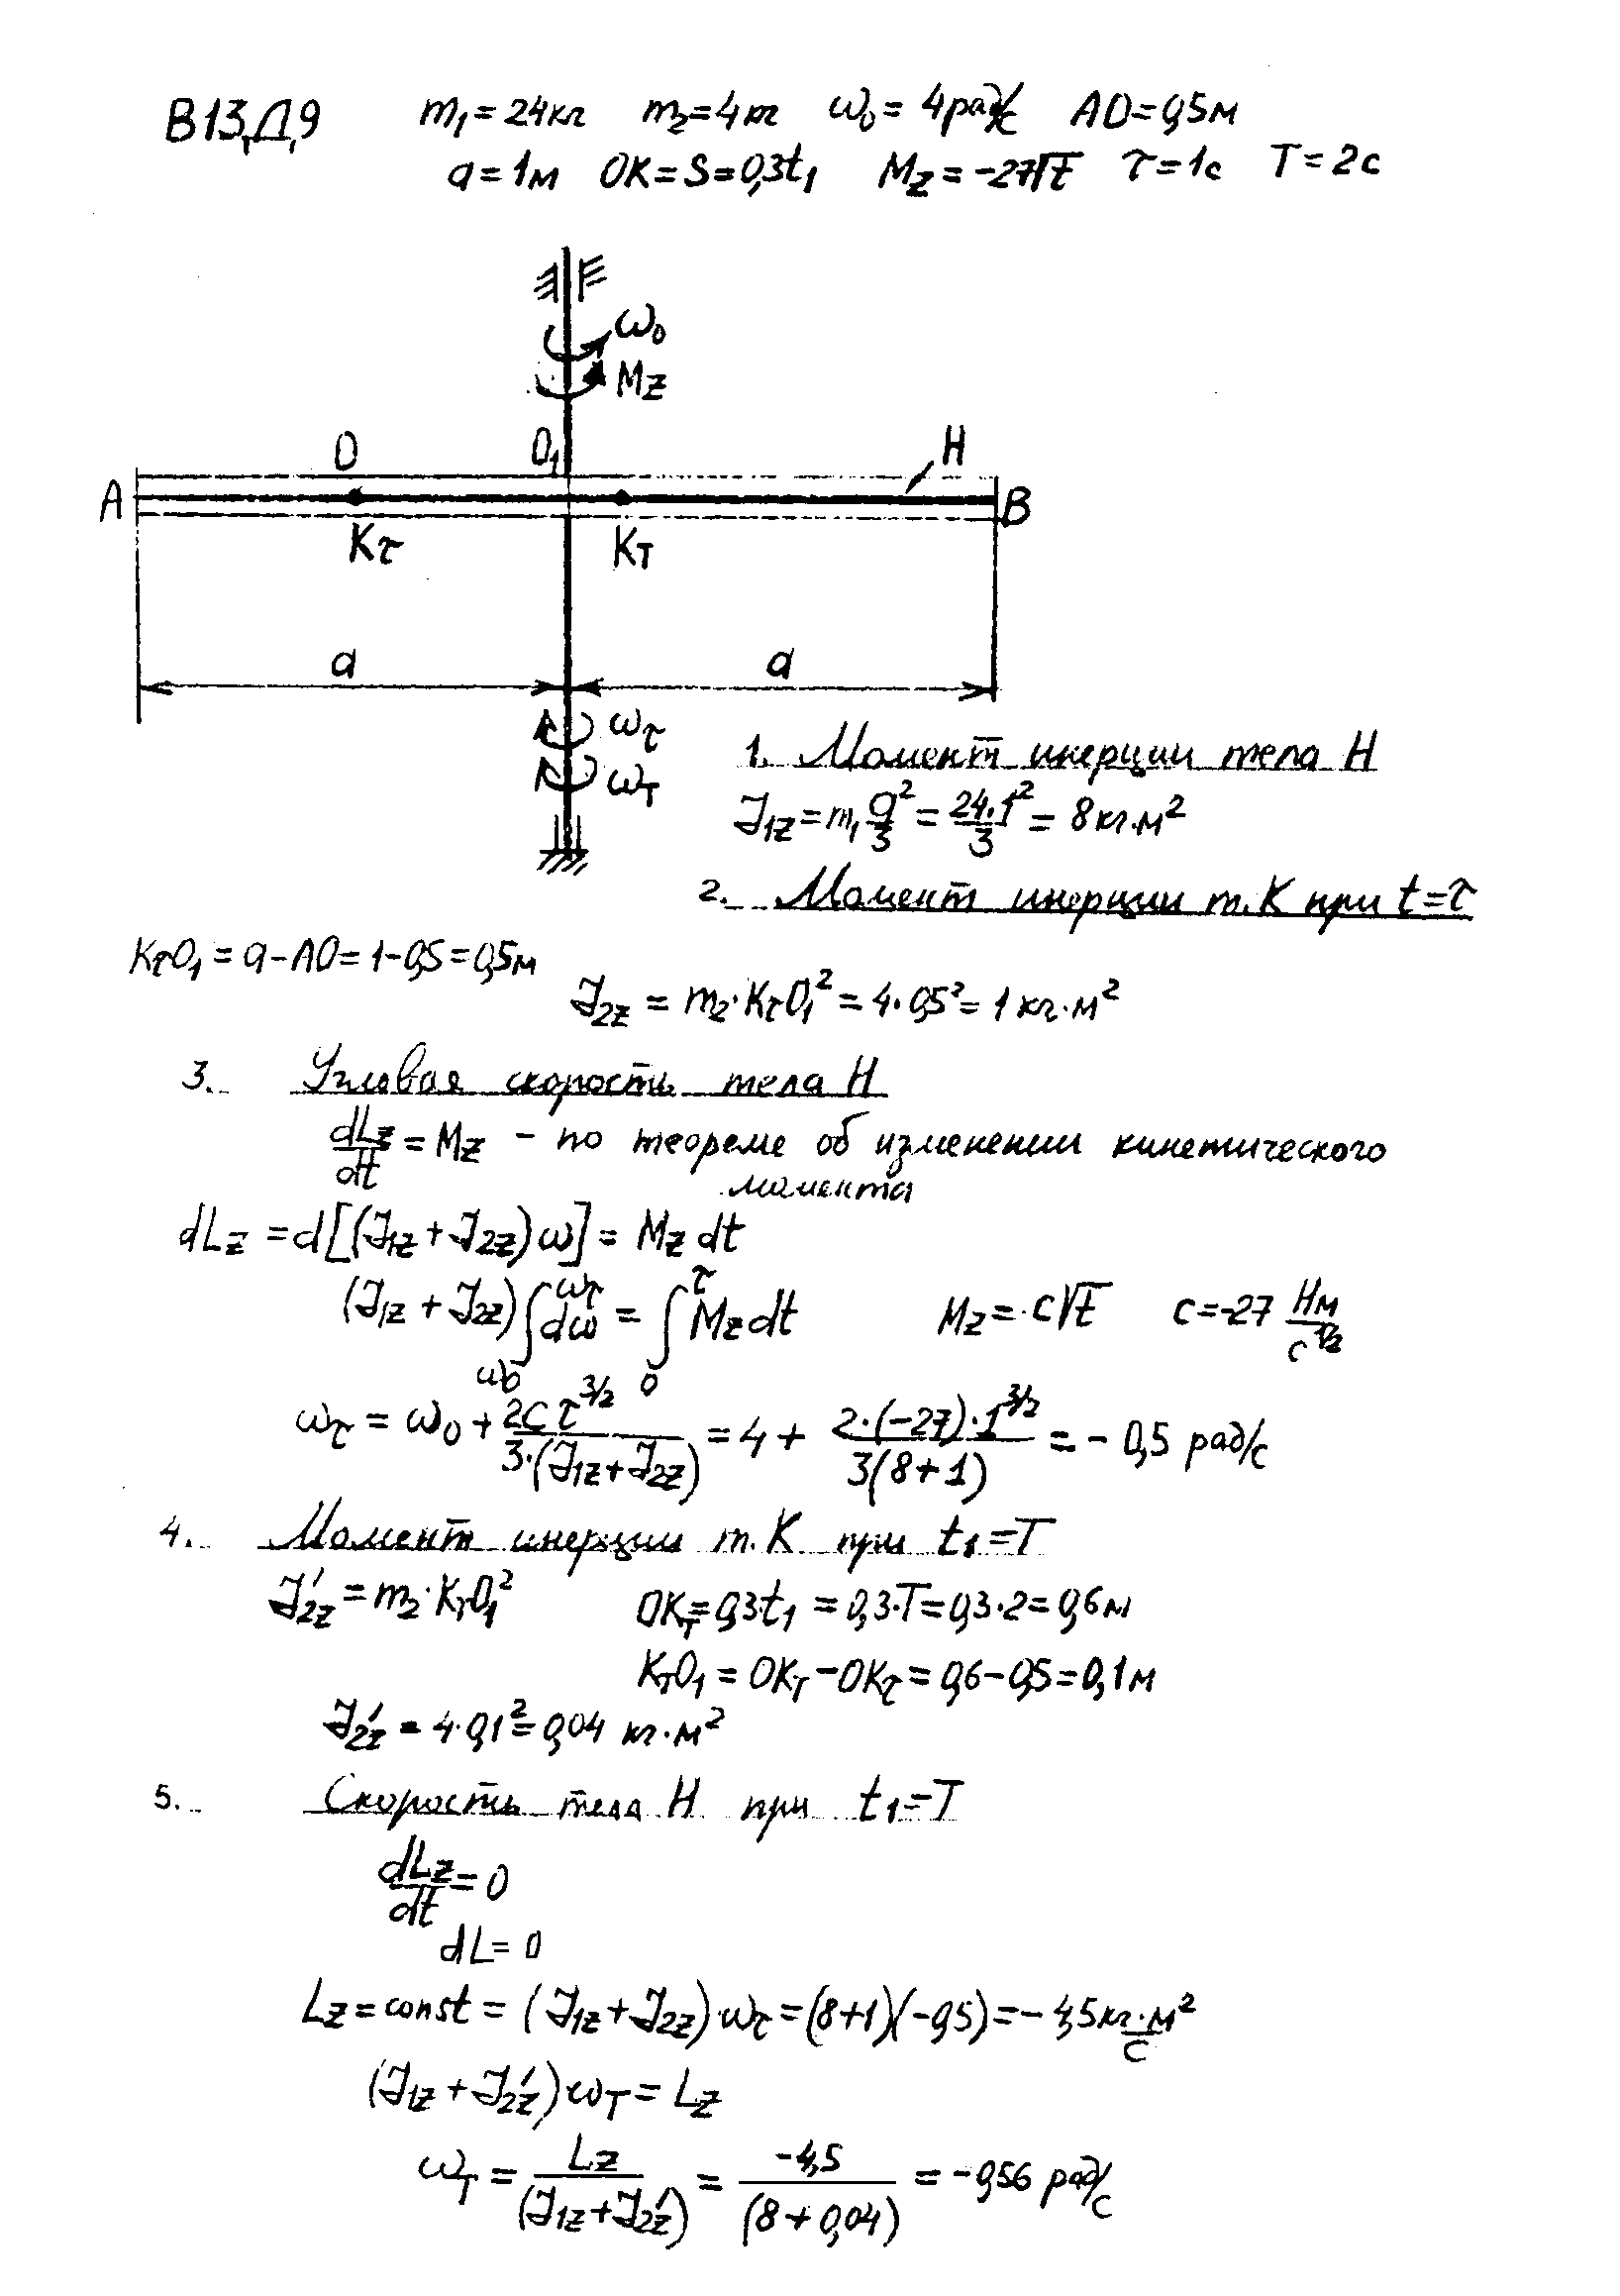 В13,Д,9 m₁=24кг m₂=4кг ω₀=4рад/с AO=0,5м
a=1м OK=S=0,3t₁ Mz=-27√t τ=1с T=2с
ω₀
Mz
O O₁ H
A B
Kτ K_T
a a
ω_τ
ω_T
1. Момент инерции тела H
J₁z=m₁a²/3=24·1²/3=8кг·м²
2. Момент инерции т.K при t=τ
KτO₁=a-AO=1-0,5=0,5м
J₂z=m₂·KτO₁²=4·0,5²=1кг·м²
3. Угловая скорость тела H
dLz/dt=Mz - по теореме об изменении кинетического
момента
dLz=d[(J₁z+J₂z)ω]=Mz dt
(J₁z+J₂z)∫_{ω₀}^{ω_τ}dω=∫_0^τ Mz dt Mz=c√t c=-27 Нм/с^{1/2}
ω_τ=ω₀+2cτ^{3/2}/3·(J₁z+J₂z)=4+2·(-27)·1^{3/2}/3(8+1)=-0,5 рад/с
4. Момент инерции т.K при t₁=T
J₂z'=m₂·K_TO₁² OK_T=0,3·t₁=0,3·T=0,3·2=0,6м
K_TO₁=OK_T-OKτ=0,6-0,5=0,1м
J₂z'=4·0,1²=0,04 кг·м²
5. Скорость тела H при t₁=T
dLz/dt=0
dL=0
Lz=const=(J₁z+J₂z)·ω_τ=(8+1)(-0,5)=-4,5кг·м²/с
(J₁z+J₂z')ω_T=Lz
ω_T=Lz/(J₁z+J₂z')=-4,5/(8+0,04)=-0,56 рад/с